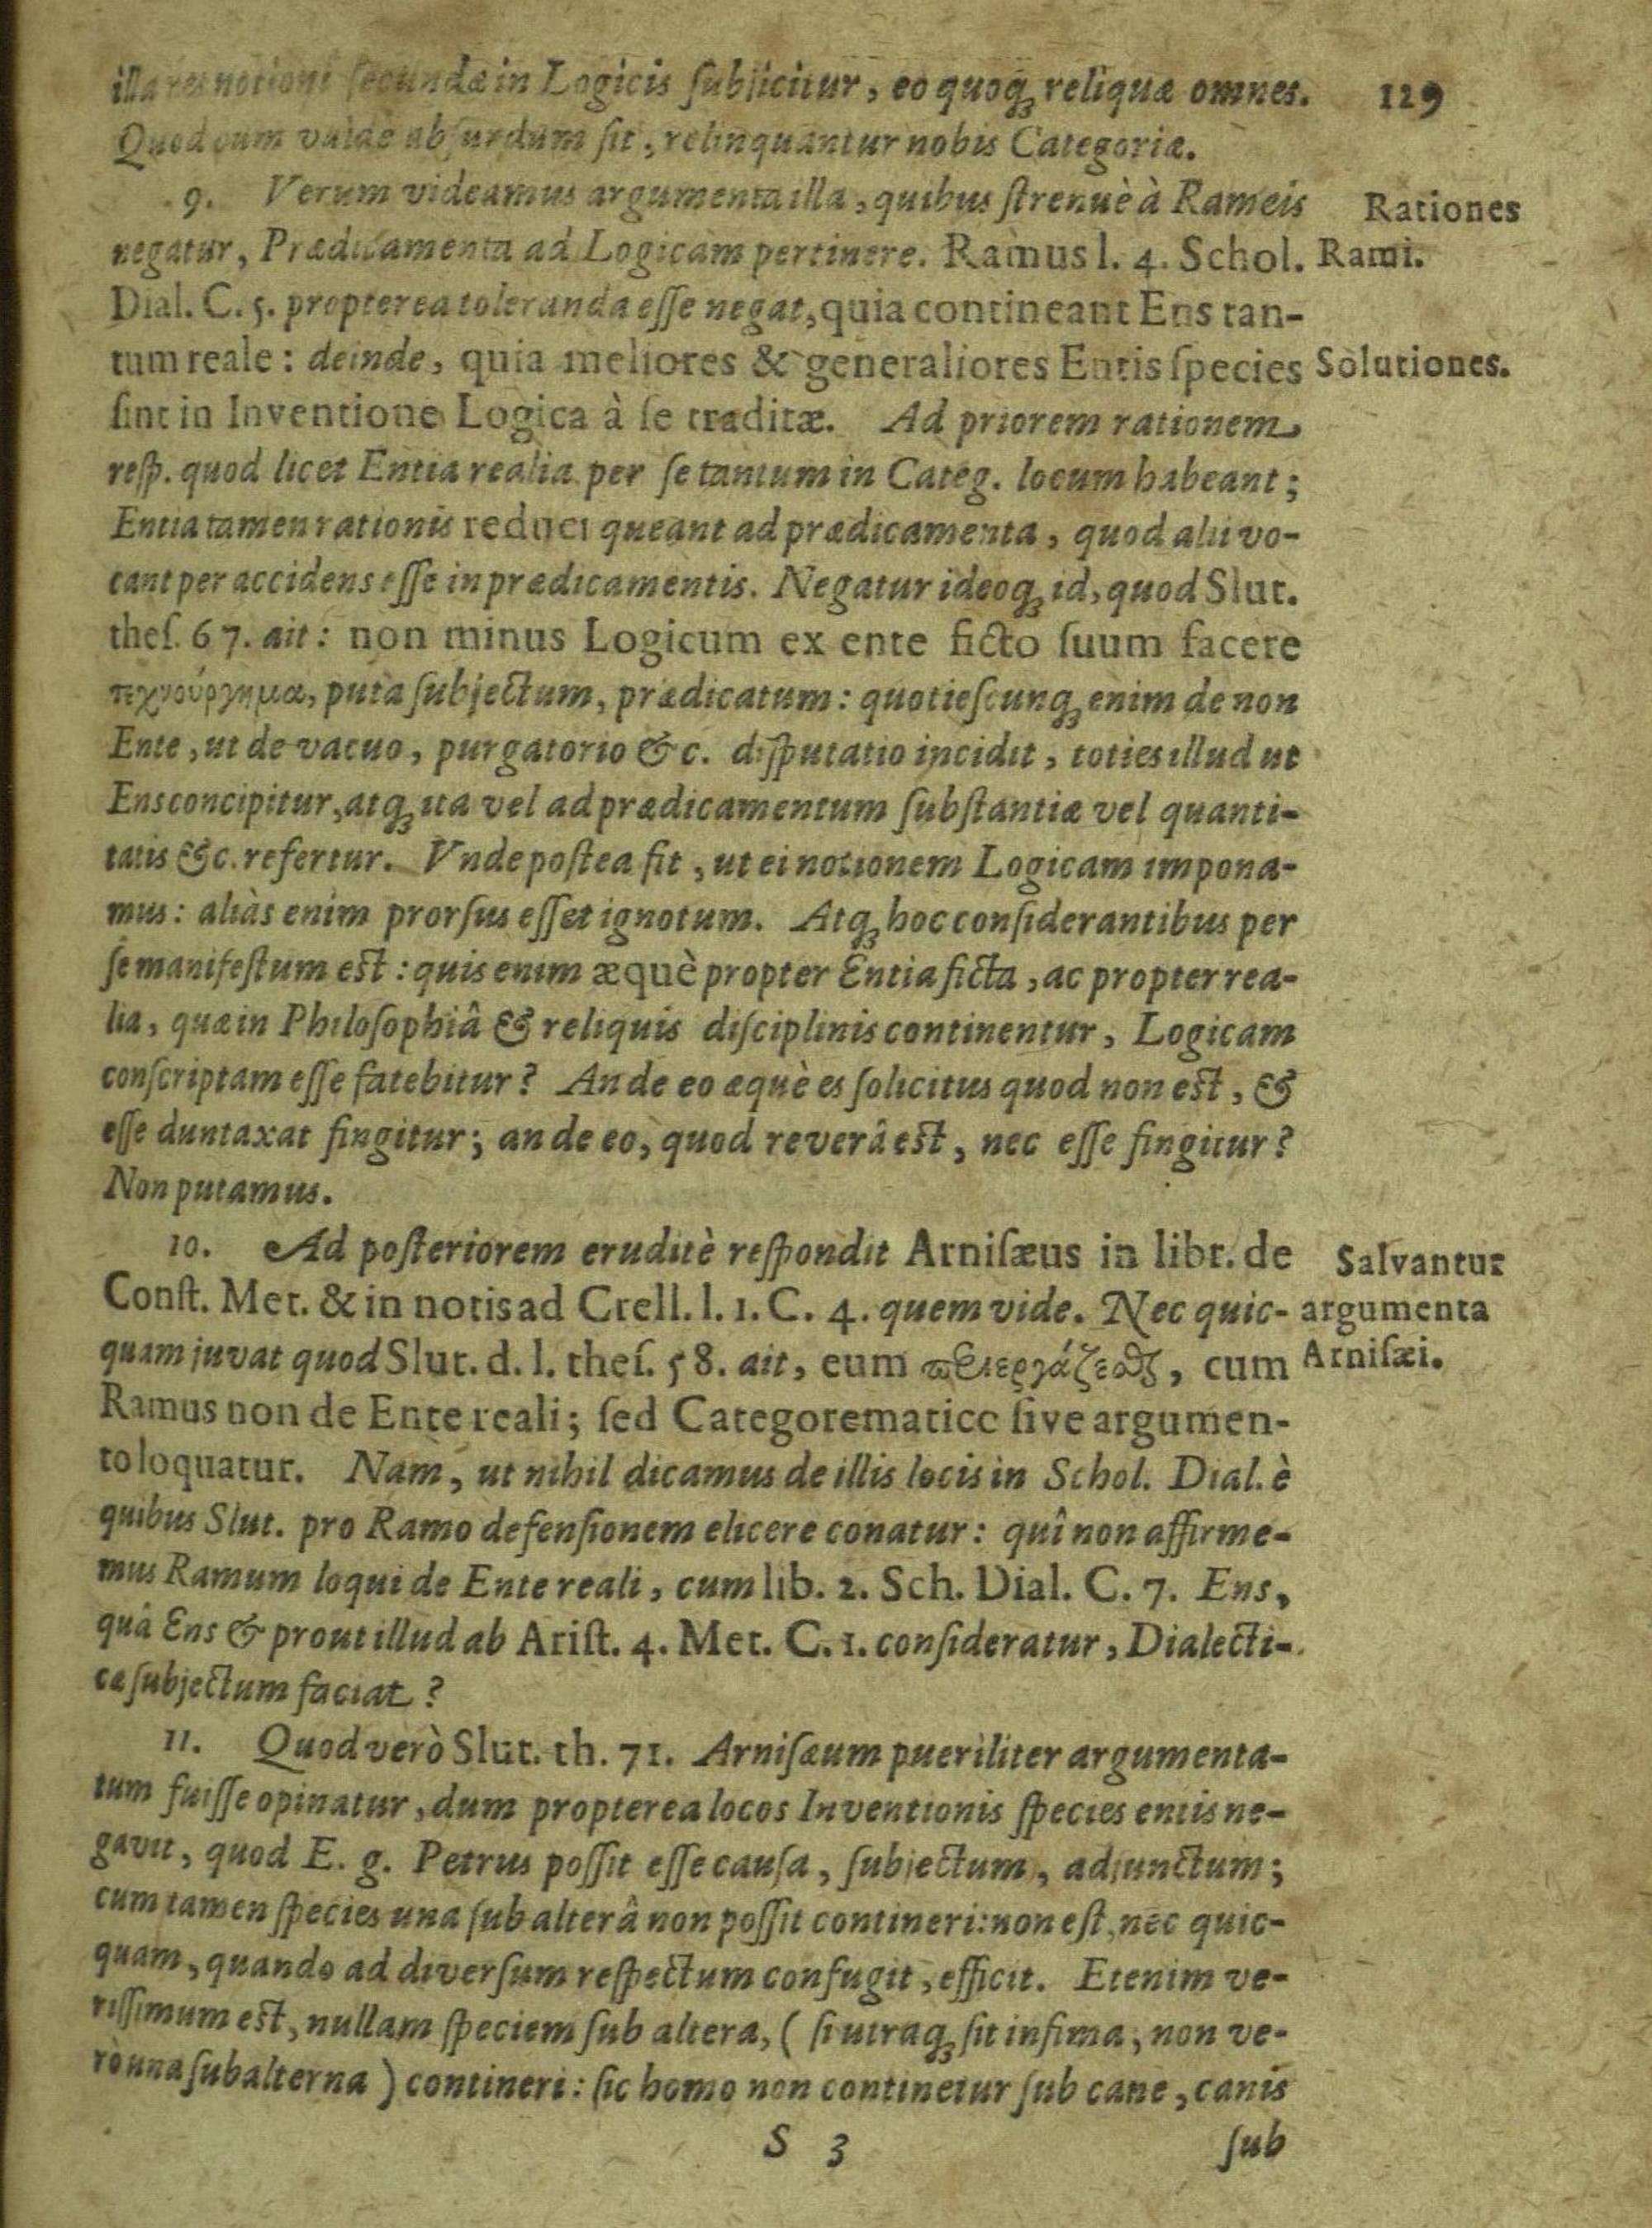 illa res notioni secundæ in Logicis subjicitur, eo quoq; reliquæ omnes. 129
Quod cum valde absurdum sit, relinquantur nobis Categoriæ.
9. Verum videamus argumenta illa, quibus ſtrenuè à Rameis Rationes
negatur, Prædicamenta ad Logicam pertinere. Ramus l. 4. Schol. Rami.
Dial. C. 5. propterea toleranda eſſe negat, quia contineant Ens tan-
tum reale: deinde, quia meliores & generaliores Entis ſpecies Solutiones.
ſint in Inventione Logica à ſe traditæ. Ad priorem rationem
reſp. quod licet Entia realia per ſe tantum in Categ. locum habeant;
Entia tamen rationis reduci queant ad prædicamenta, quod alii vo-
cant per accidens eſſe in prædicamentis. Negatur ideoq; id, quod Slut.
theſ. 67. ait: non minus Logicum ex ente ficto ſuum facere
τεχνούργημα, puta ſubjectum, prædicatum: quotieſcunq; enim de non
Ente, ut de vacuo, purgatorio &c. diſputatio incidit, toties illud ut
Ens concipitur, atq; ita vel ad prædicamentum ſubſtantiæ vel quanti-
tatis &c. refertur. Vnde poſtea fit, ut ei notionem Logicam impona-
mus: aliàs enim prorſus eſſet ignotum. Atq; hoc conſiderantibus per
ſe manifeſtum eſt: quis enim æquè propter Entia ficta, ac propter rea-
lia, quæ in Philoſophiâ & reliquis diſciplinis continentur, Logicam
conſcriptam eſſe fatebitur? An de eo æquè es ſolicitus quod non eſt, &
eſſe duntaxat fingitur; an de eo, quod reverâ eſt, nec eſſe fingitur?
Non putamus.
10. Ad poſteriorem eruditè reſpondit Arniſæus in libr. de Salvantur
Conſt. Met. & in notis ad Crell. l. 1. C. 4. quem vide. Nec quic- argumenta
quam juvat quod Slut. d. l. theſ. 58. ait, eum cum Arniſæi.
Ramus non de Ente reali; ſed Categorematice ſive argumen-
to loquatur. Nam, ut nihil dicamus de illis locis in Schol. Dial. è
quibus Slut. pro Ramo defenſionem elicere conatur: quî non affirme-
mus Ramum loqui de Ente reali, cum lib. 2. Sch. Dial. C. 7. Ens,
quâ Ens & prout illud ab Ariſt. 4. Met. C. 1. conſideratur, Dialecti-
cæ ſubjectum faciat?
11. Quod verò Slut. th. 71. Arniſæum pueriliter argumenta-
tum fuiſſe opinatur, dum propterea locos Inventionis ſpecies entis ne-
gavit, quod E. g. Petrus poſſit eſſe cauſa, ſubjectum, adjunctum;
cum tamen ſpecies una ſub alterâ non poſſit contineri: non eſt, nec quic-
quam, quando ad diverſum reſpectum confugit, efficit. Etenim ve-
riſſimum eſt, nullam ſpeciem ſub altera, (ſi utraq; ſit infima, non ve-
rò una ſubalterna) contineri: ſic homo non continetur ſub cane, canis
S 3 ſub